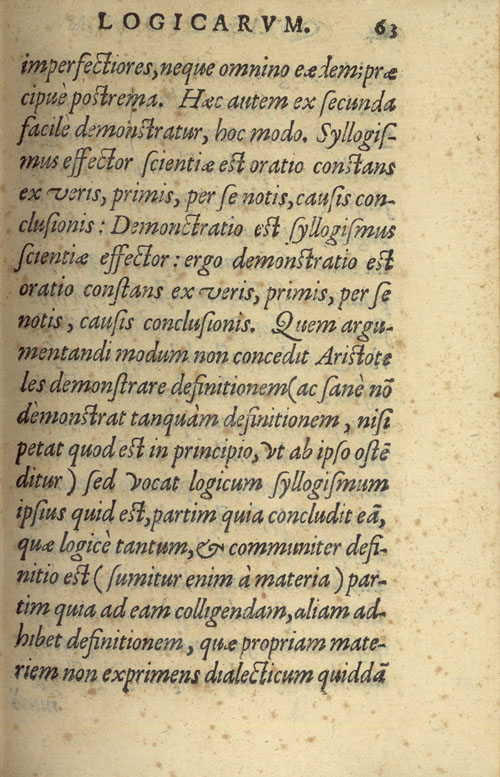 LOGICARVM. 63
imperfectiores, neque omnino eædem; præ
cipuè postrema. Hæc autem ex secunda
facilè demonstratur, hoc modo. Syllogis-
mus effector scientiæ est oratio constans
ex veris, primis, per se notis, causis con-
clusionis: Demonctratio est syllogismus
scientiæ effector: ergo demonstratio est
oratio constans ex veris, primis, per se
notis, causis conclusionis. Quem argu-
mentandi modum non concedit Aristote
les demonstrare definitionem (ac sanè nõ
dèmonstrat tanquàm definitionem, nisi
petat quod est in principio, vt ab ipso ostẽ
ditur) sed vocat logicum syllogismum
ipsius quid est, partim quia concludit eã,
quæ logicè tantum, & communiter defi-
nitio est (sumitur enim à materia) par-
tim quia ad eam colligendam, aliam ad-
hibet definitionem, quæ propriam mate-
riem non exprimens dialecticum quiddã